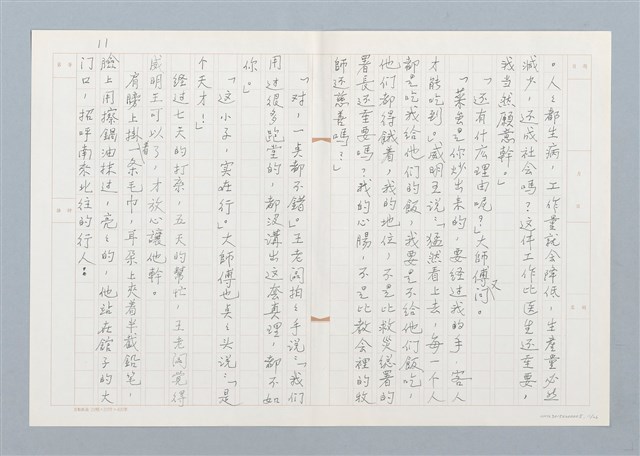 11
。人人都生病，工作量就会降低，生產量必然
減少，还成社会嗎？这件工作比医生还重要，
我当然願意幹。」
「还有什麼理由呢？」大師傅又问。
「菜虽是你炒出来的，要经过我的手，客人
才能吃到。」威明王说：「猛然看上去，每一个人
都是吃我给他们的飯，我要是不给他们飯吃，
他们都得餓着，我的地位，不是比救災総署的
署長还重要嗎？我的心腸，不是比教会裡的牧
師还慈善嗎？」
「对，一点都不錯。」王老闆拍拍手说：「我们
用过很多跑堂的，都没講出这套真理，都不如
你。」
「这小子，实在行。」大師傅也点点头说：「是
个天才！」
经过七天的打杂，五天的幫忙，王老闆觉得
威明王可以了，才放心讓他幹。
肩膀上掛着一条毛巾，耳朵上夾着半截鉛笔，
臉上用擦鍋油抹过，亮亮的，他站在舘子的大
門口，招呼南来北往的行人：